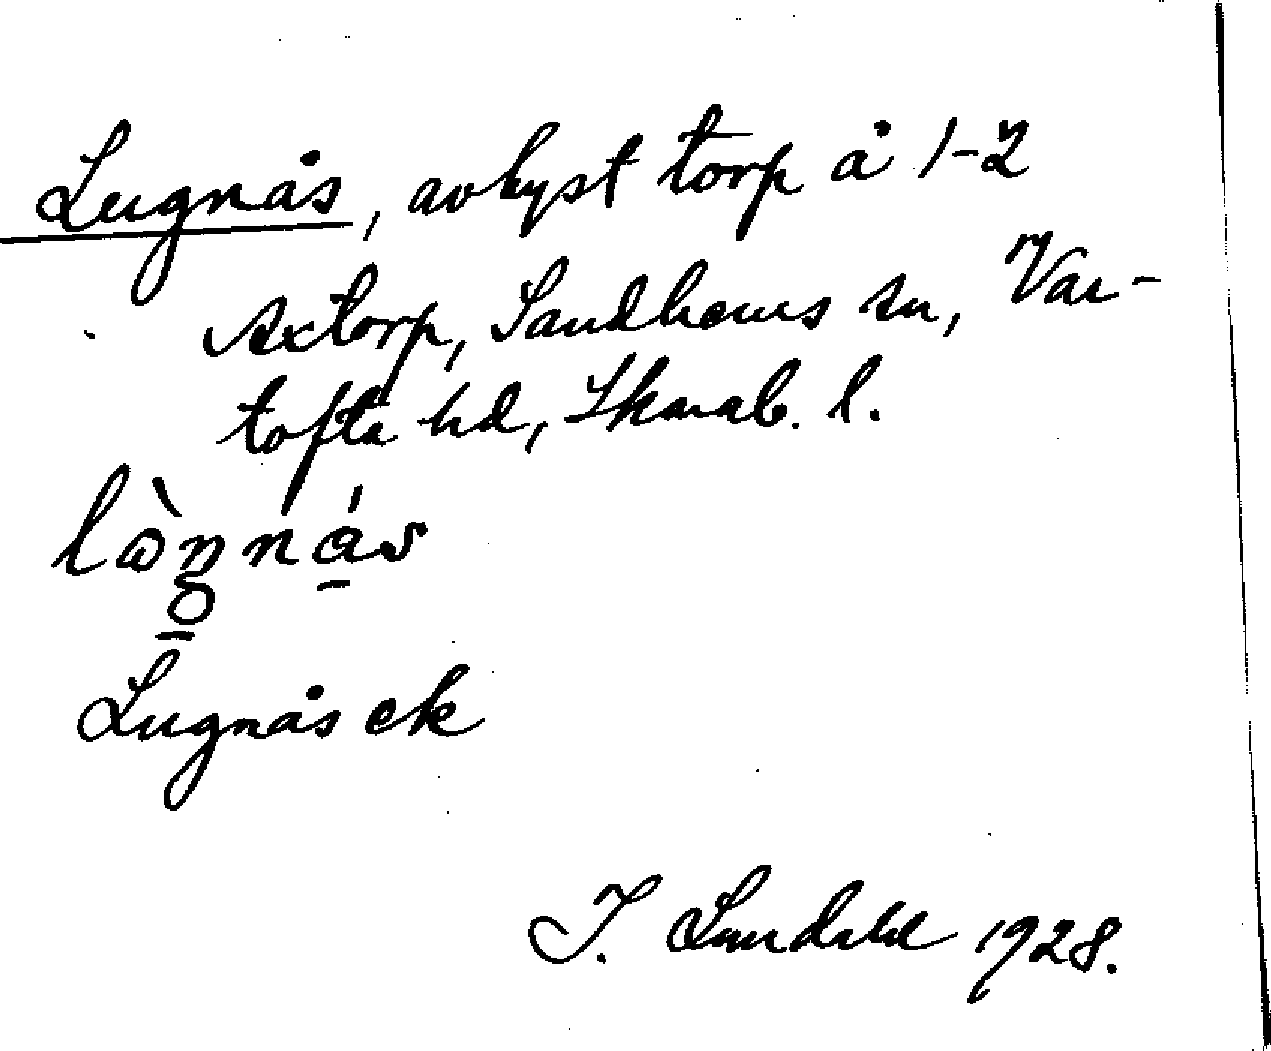 Lugnås, avhyst torp å 1-2
Axtorp, Sandhems sn, Var-
tofta hd, Skarab. l.
lòŋnás
Lugnås ek
I. Lundahl 1928.